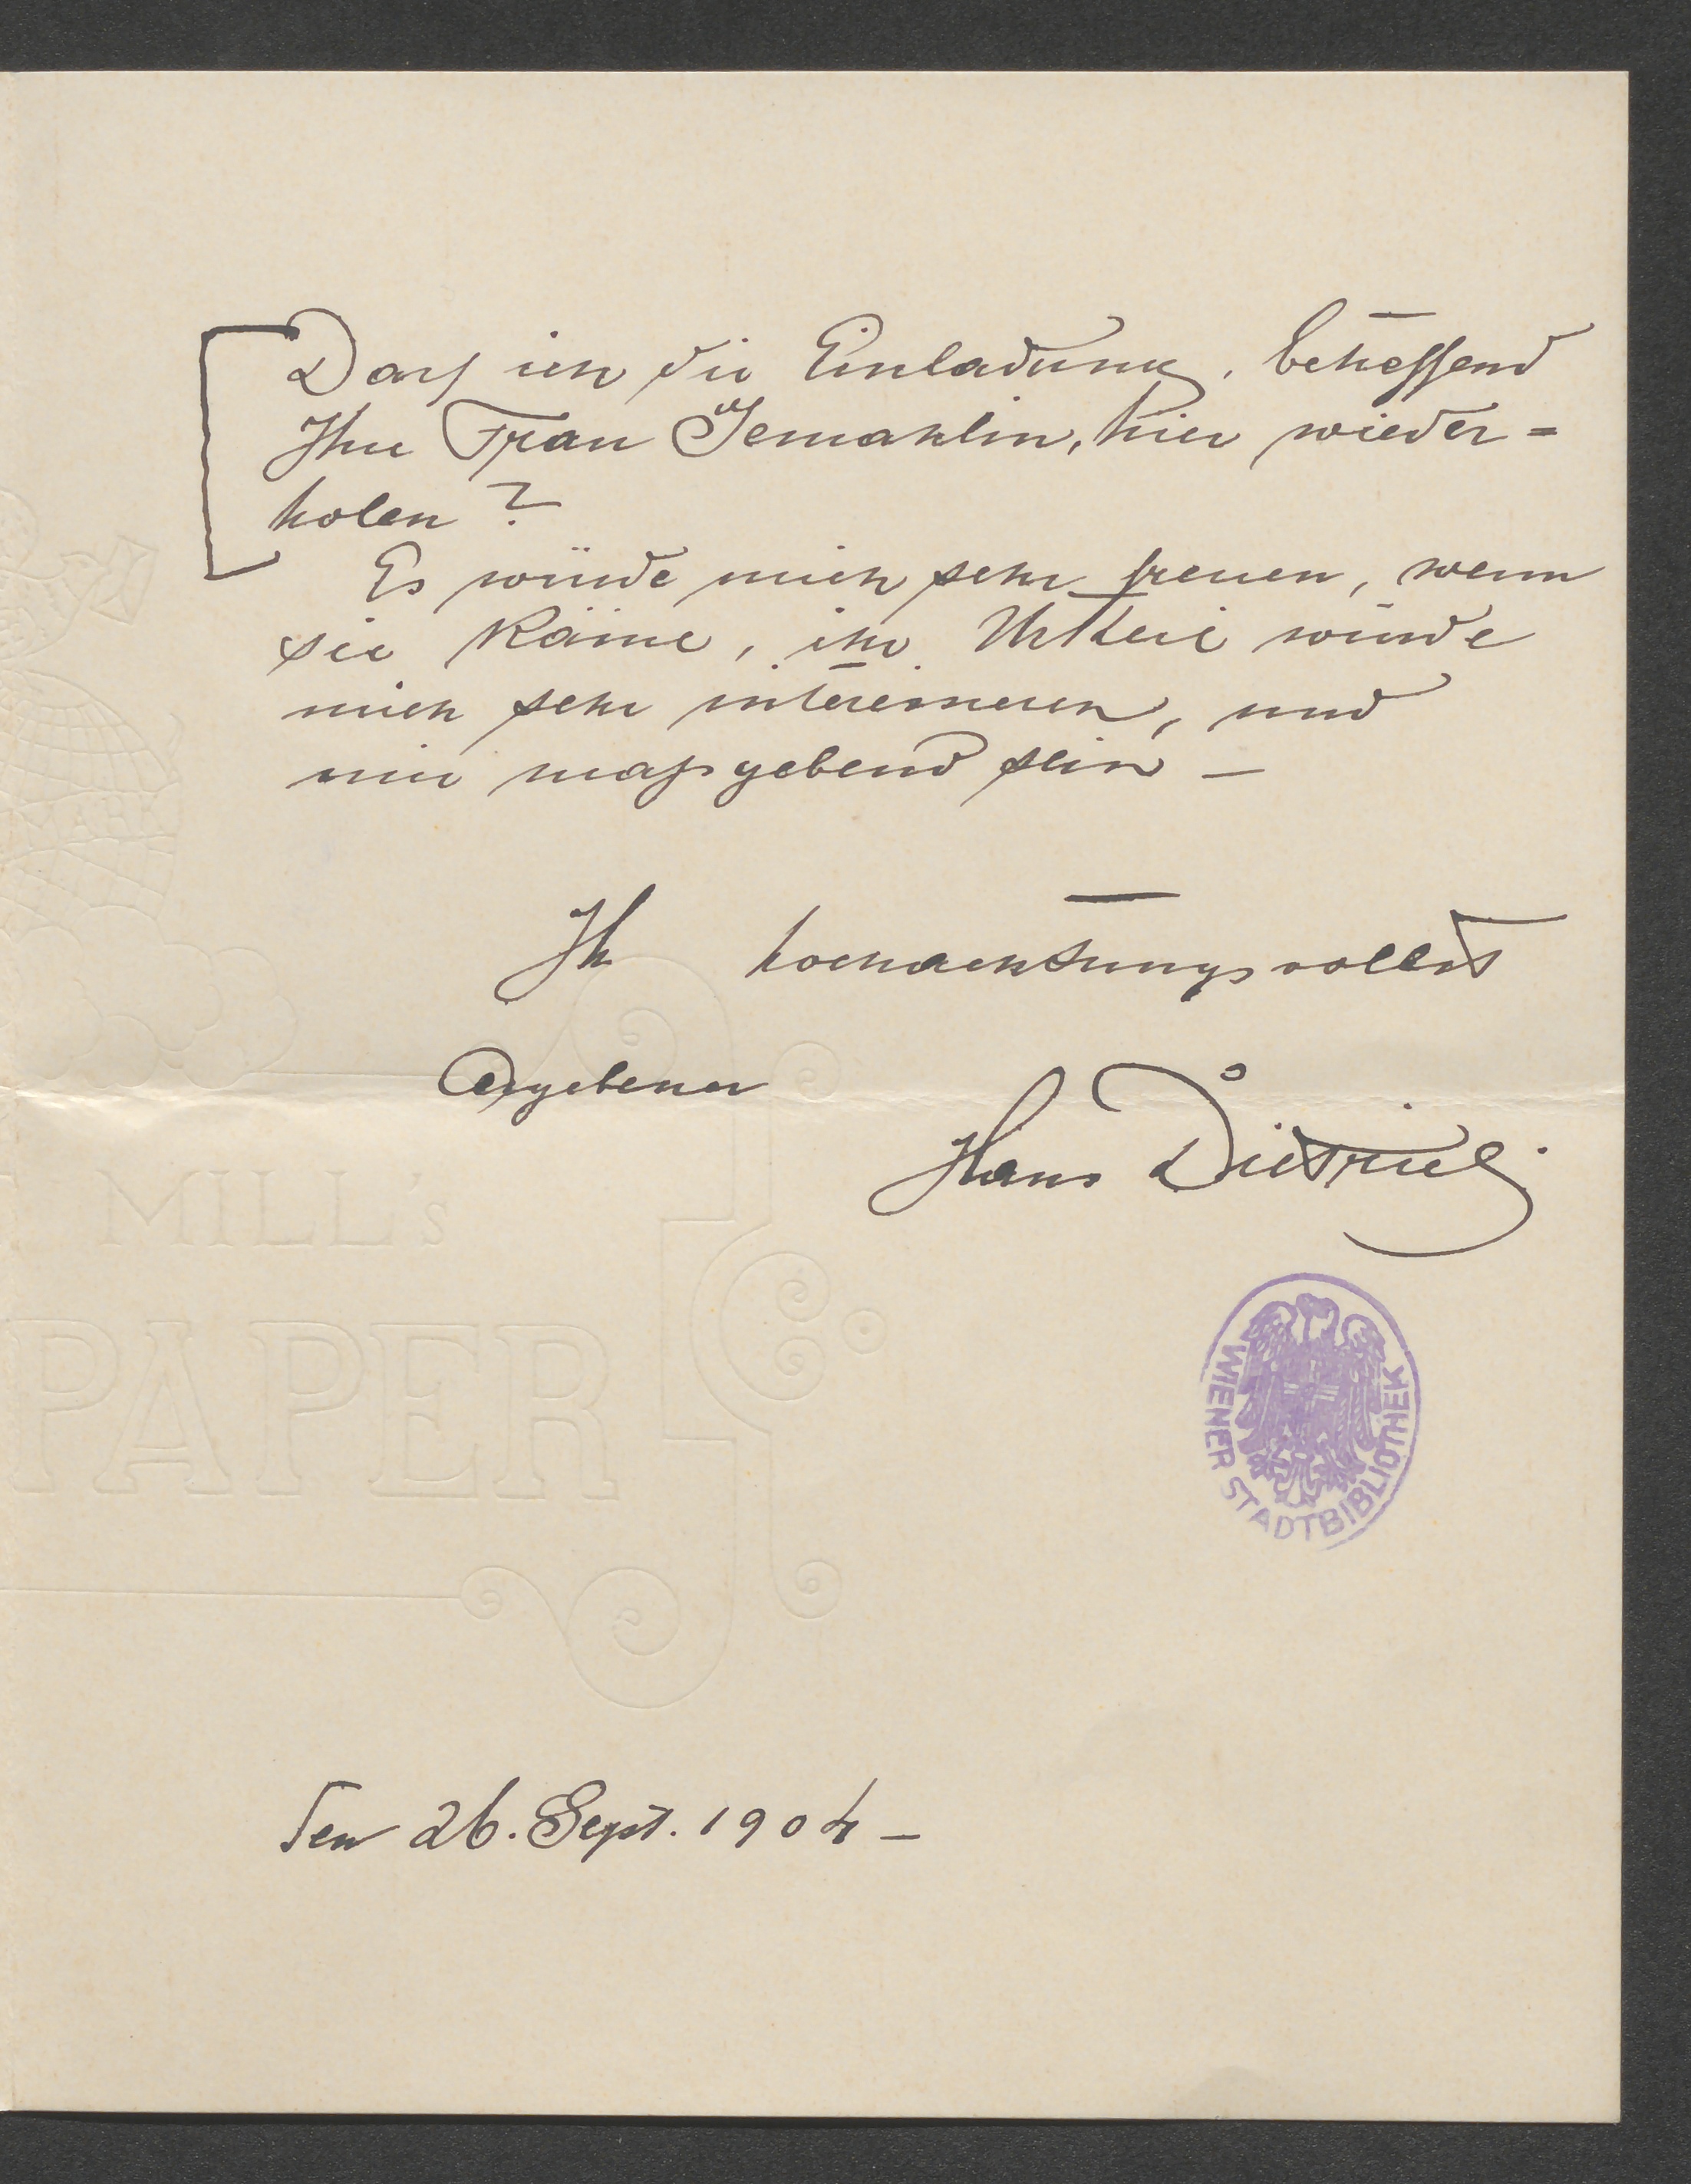 Darf ich die Einladung, betreffend
Ihre Frau Gemahlin, hier wieder=
holen?
Es würde mich sehr freuen, wenn
sie käme, ihr Urteil würde
mich sehr interessieren, und
mir maßgebend sein –
Ihr hochachtungsvollst
Ergebener
Hans Dietrich.
WIENER STADTBIBLIOTHEK
MILL's
PAPER
Den 26. Sept. 1904 –